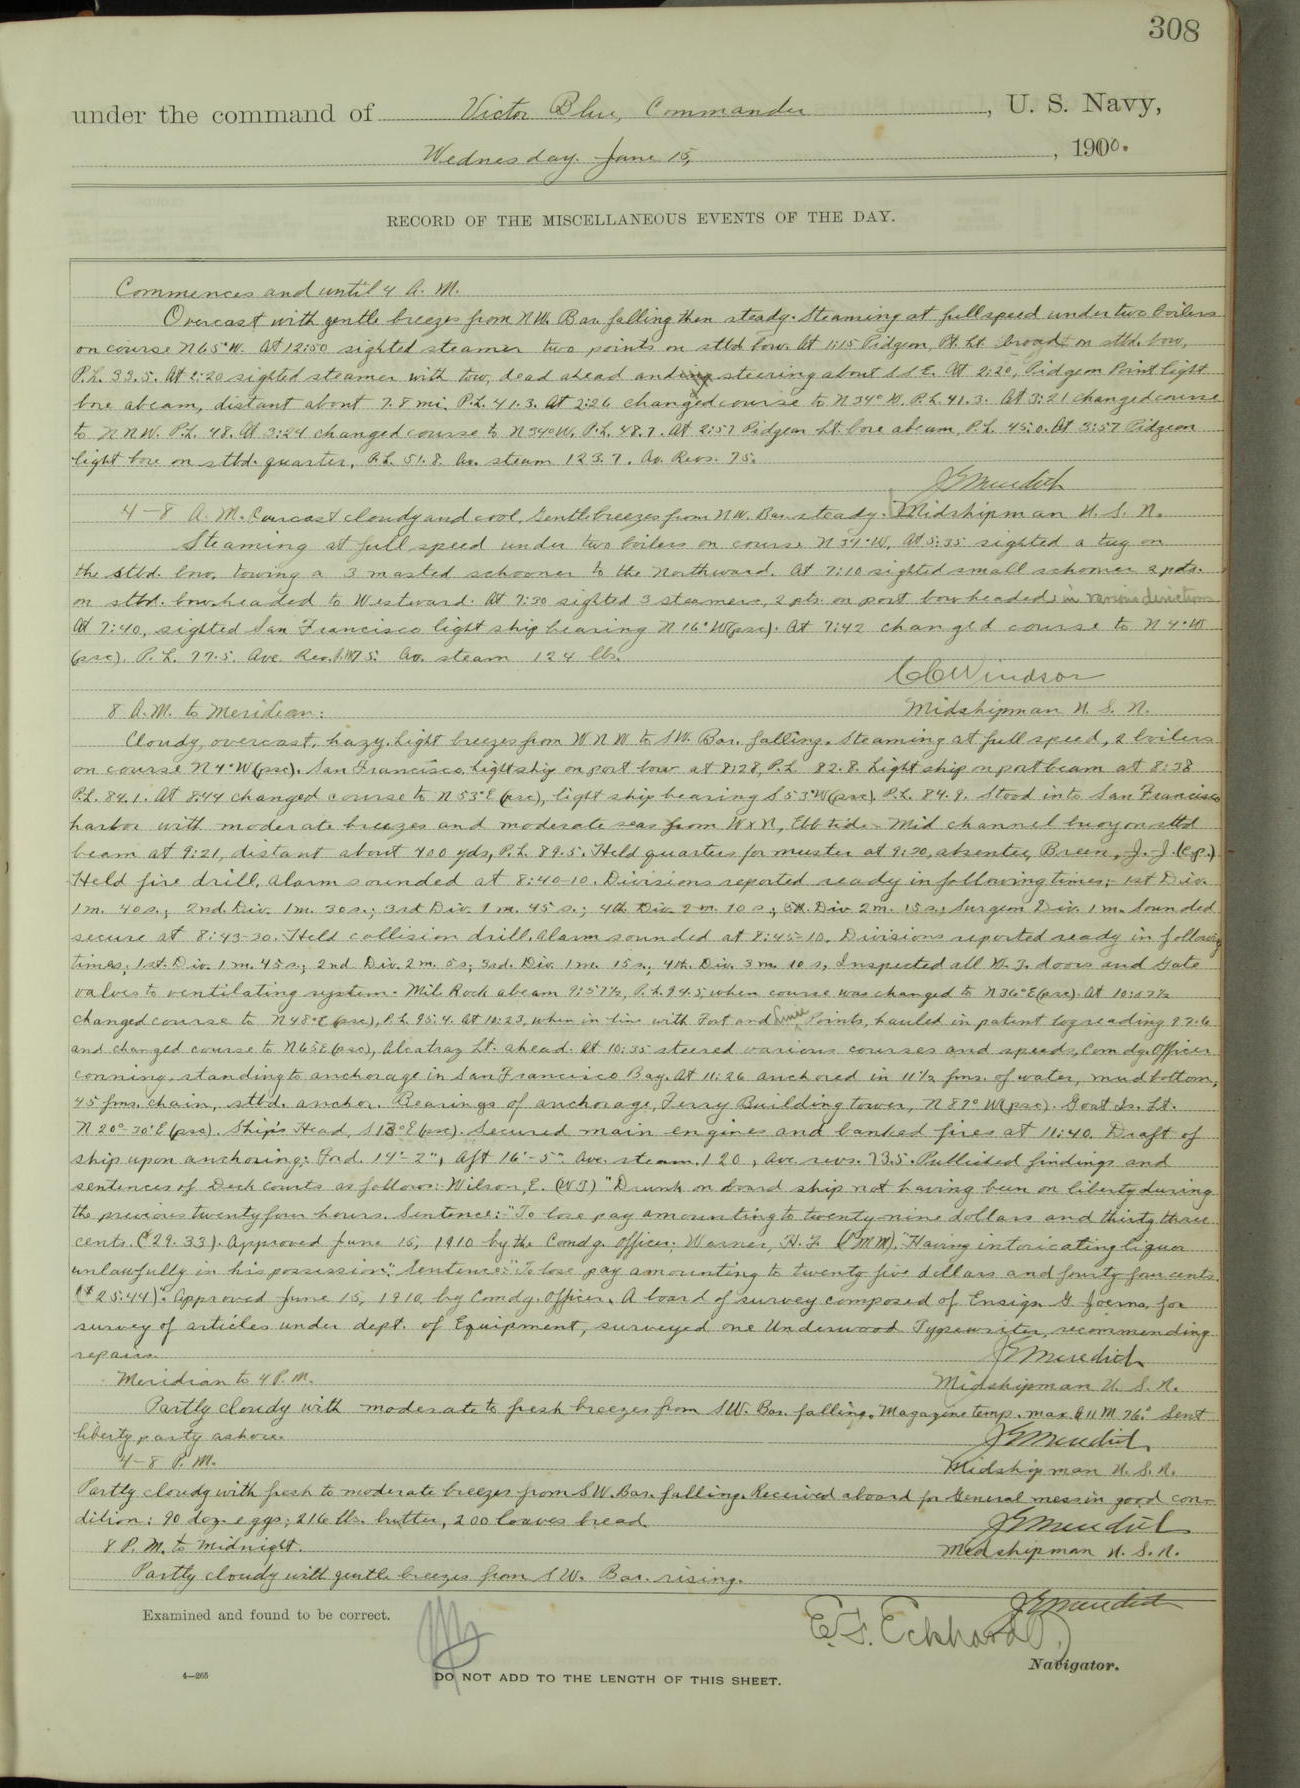 308
under the command of Victor Blue, Commander, U. S. Navy,
Wednesday. June 15, , 1900.
RECORD OF THE MISCELLANEOUS EVENTS OF THE DAY.
Commences and until 4 A. M.
Overcast with gentle breezes from NW. Bar. falling then steady. Steaming at full speed under two boilers
on course N65°W. At 12:50 sighted steamer two points on stbd bow. At 1:15 Pidgeon Pt. Lt. broad on stbd. bow,
P.L. 33.5. At 2:20 sighted steamer with tow, dead ahead and steering about SSE. At 2:20, Pidgeon Point light
bore abeam, distant about 7.8 mi. P.L. 41.3. At 2:26 changed course to N34°W. P.L. 41.3. At 3:21 changed course
to NNW. P.L. 48. At 3:24 changed course to N34°W. P.L. 48.7. At 2:57 Pidgeon Lt. bore abeam, P.L. 45.0. At 3:57 Pidgeon
light bore on stbd. quarter, P.L. 51.8. Av. steam 123.7. Av. Revs. 75.
J G Meredith
4-8 A.M. Overcast cloudy and cool, Gentle breezes from NW. Bar. steady. Midshipman U. S. N.
Steaming at full speed under two boilers on course N34°W. At 5:35 sighted a tug on
the stbd. bow, towing a 3 masted schooner to the northward. At 7:10 sighted small schooner 2 pts.
on stbd. bow headed to Westward. At 7:30 sighted 3 steamers, 2 pts. on port bow headed in various directions
At 7:40, sighted San Francisco light ship bearing N16°W(psc). At 7:42 changed course to N4°W
(psc). P.L. 77.5. Ave. Rev. 75. Av. steam 124 lbs.
C C Windsor
8 A.M. to Meridian: Midshipman U. S. N.
Cloudy, overcast, hazy. Light breezes from WNW to SW. Bar. falling. Steaming at full speed, 2 boilers
on course N4°W(psc). San Francisco light ship on port bow at 8:28, P.L. 82.8. Light ship on port beam at 8:38
P.L. 84.1. At 8:44 changed course to N53°E (psc), light ship bearing S53°W(psc), P.L. 84.9. Stood into San Francisco
harbor with moderate breezes and moderate seas from WxN, Ebb tide. Mid channel buoy on stbd
beam at 9:21, distant about 400 yds, P.L. 89.5. Held quarters for muster at 9:30, absentee, Breen, J. J. (c.p.)
Held fire drill, alarm sounded at 8:40-10. Divisions reported ready in following times; 1st Div.
1m. 40s.; 2nd. Div. 1m. 30s.; 3rd Div. 1m. 45s.; 4th Div 2m. 10s.; 5th. Div 2m. 15s.; Surgeon Div. 1m. Sounded
secure at 8:43-30. Held collision drill. Alarm sounded at 8:45-10. Divisions reported ready in following
times; 1st. Div. 1m. 45s; 2nd Div. 2m. 5s; 3rd. Div. 1m. 15s.; 4th. Div. 3m. 10s, Inspected all W.T. doors and Gate
valves to ventilating system. Mile Rock abeam 9:57½, P.L. 94.5, when course was changed to N36°E(psc). At 10:07½
changed course to N48°E (psc), P.L. 95.4. At 10:23, when in line with Fort and Lime Points, hauled in patent log reading 97.6
and changed course to N65E(psc), Alcatraz Lt. ahead. At 10:35 steered various courses and speeds, Comdg. Officer
conning, standing to anchorage in San Francisco Bay. At 11:26 anchored in 11½ fms. of water, mud bottom,
45 fms. chain, stbd. anchor. Bearings of anchorage, Ferry Building tower, N87°W(psc). Goat Is. Lt.
N20°-30'E(psc). Ship's Head, S13°E(psc). Secured main engines and banked fires at 11:40. Draft of
ship upon anchoring: Fwd. 14'-2", Aft 16'-5". Ave. steam. 120, Ave. revs. 73.5. Published findings and
sentences of Deck Courts as follows: Wilson, E. (WT) "Drunk on board ship not having been on liberty during
the previous twenty four hours. Sentence: "To lose pay amounting to twenty nine dollars and thirty three
cents. ($29.33). Approved June 15, 1910 by the Comdg. Officer; Warner, H. F. (PMM), "Having intoxicating liquor
unlawfully in his possession". Sentence: "To lose pay amounting to twenty five dollars and fourty four cents.
($25.44)". Approved June 15, 1910, by Comdg. Officer. A board of survey composed of Ensign G Joerns, for
survey of articles under dept. of Equipment, surveyed one Underwood Typewriter, recommending
repairs.
J G Meredith
Meridian to 4 P.M. Midshipman U. S. N.
Partly cloudy with moderate to fresh breezes from SW. Bar. falling. Magazine temp. max 76° Sent
liberty party ashore.
J G Meredith
4-8 P.M. Midshipman U. S. N.
Partly cloudy with fresh to moderate breezes from SW. Bar. falling. Received aboard for General mess in good con-
dition: 90 doz. eggs; 216 lbs. butter, 200 loaves bread.
J G Meredith
8 P.M. to Midnight. Midshipman U. S. N.
Partly cloudy with gentle breezes from SW. Bar. rising.
J G Meredith
Examined and found to be correct.
E. F. Eckhardt
Navigator.
4—265
DO NOT ADD TO THE LENGTH OF THIS SHEET.